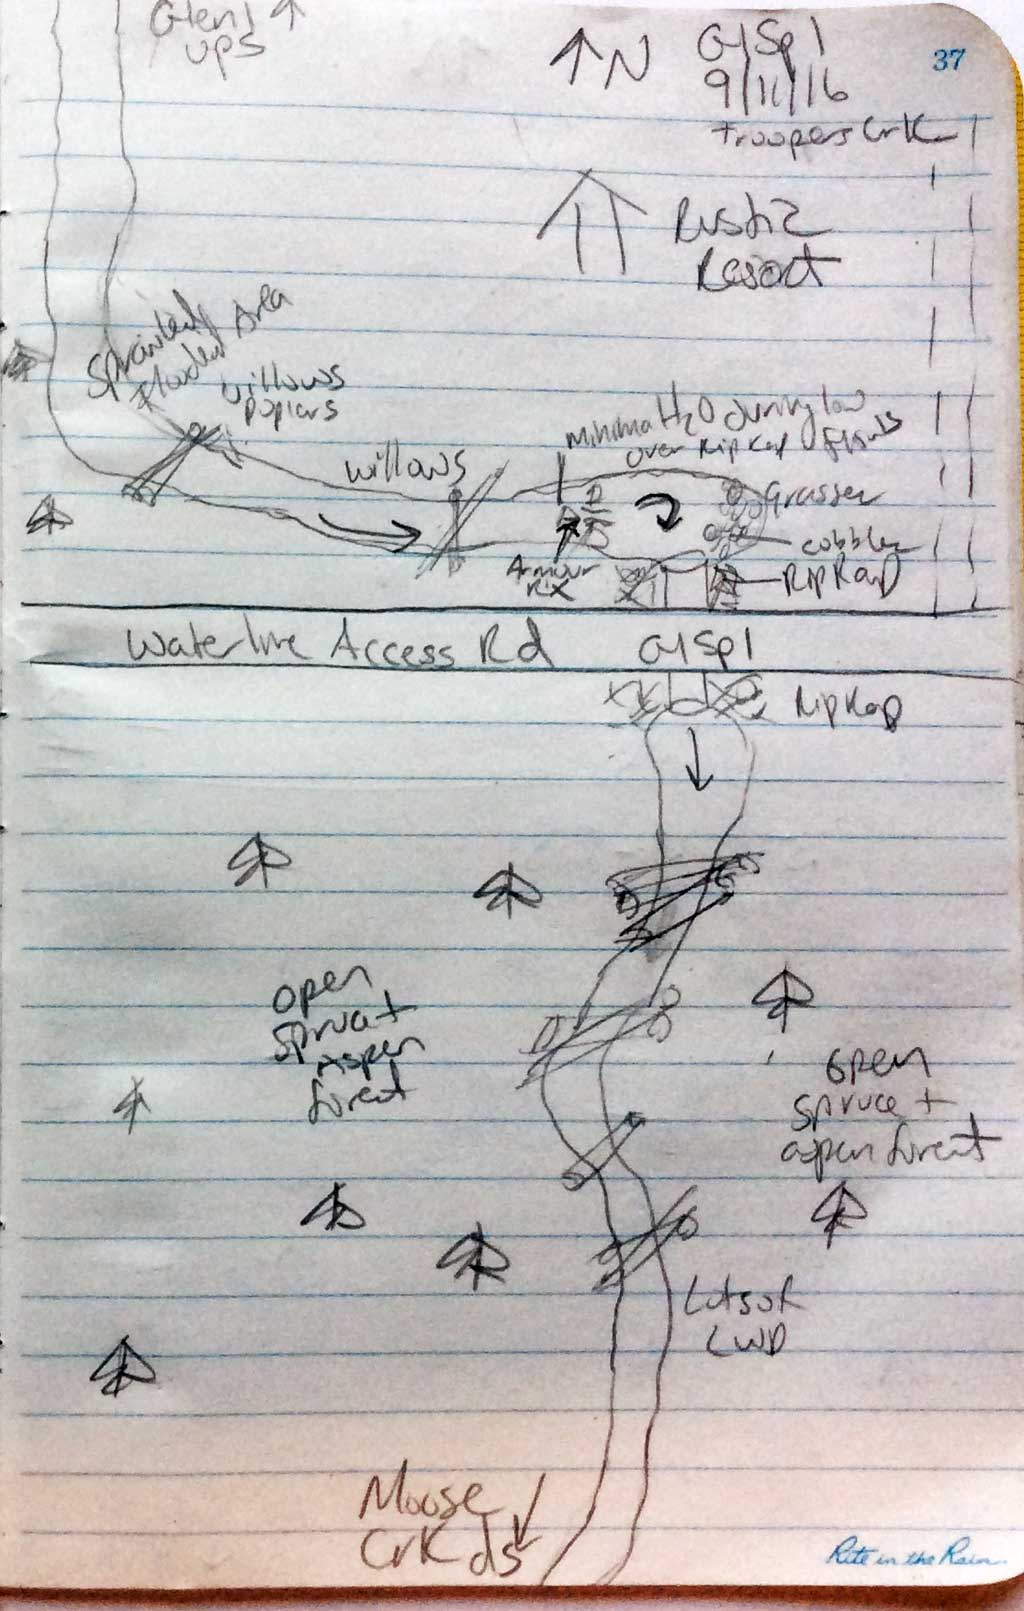 Glen1
ups
N
GlSp1
37
9/11/16
Troopers Crk
Rustic
Resort
Sprinkled
Flooded Area
willows
Poplars
willows
Minimal H2O during low
over RipRap
Grasses
cobbles
RipRap
Armour
Rx
Waterline Access Rd
GlSp1
RipRap
Open
Spruce +
Aspen
forest
Open
Spruce +
aspen forest
Lots of
LWD
Moose
Crk ds
Rite in the Rain